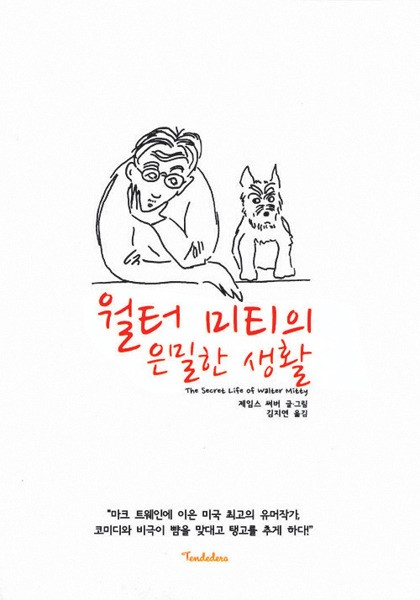 월터 미티의
은밀한 생활
The Secret Life of Walter Mitty
제임스 써버 글·그림
김지연 옮김
"마크 트웨인에 이은 미국 최고의 유머작가,
코미디와 비극이 뺨을 맞대고 탱고를 추게 하다!"
Tendedero